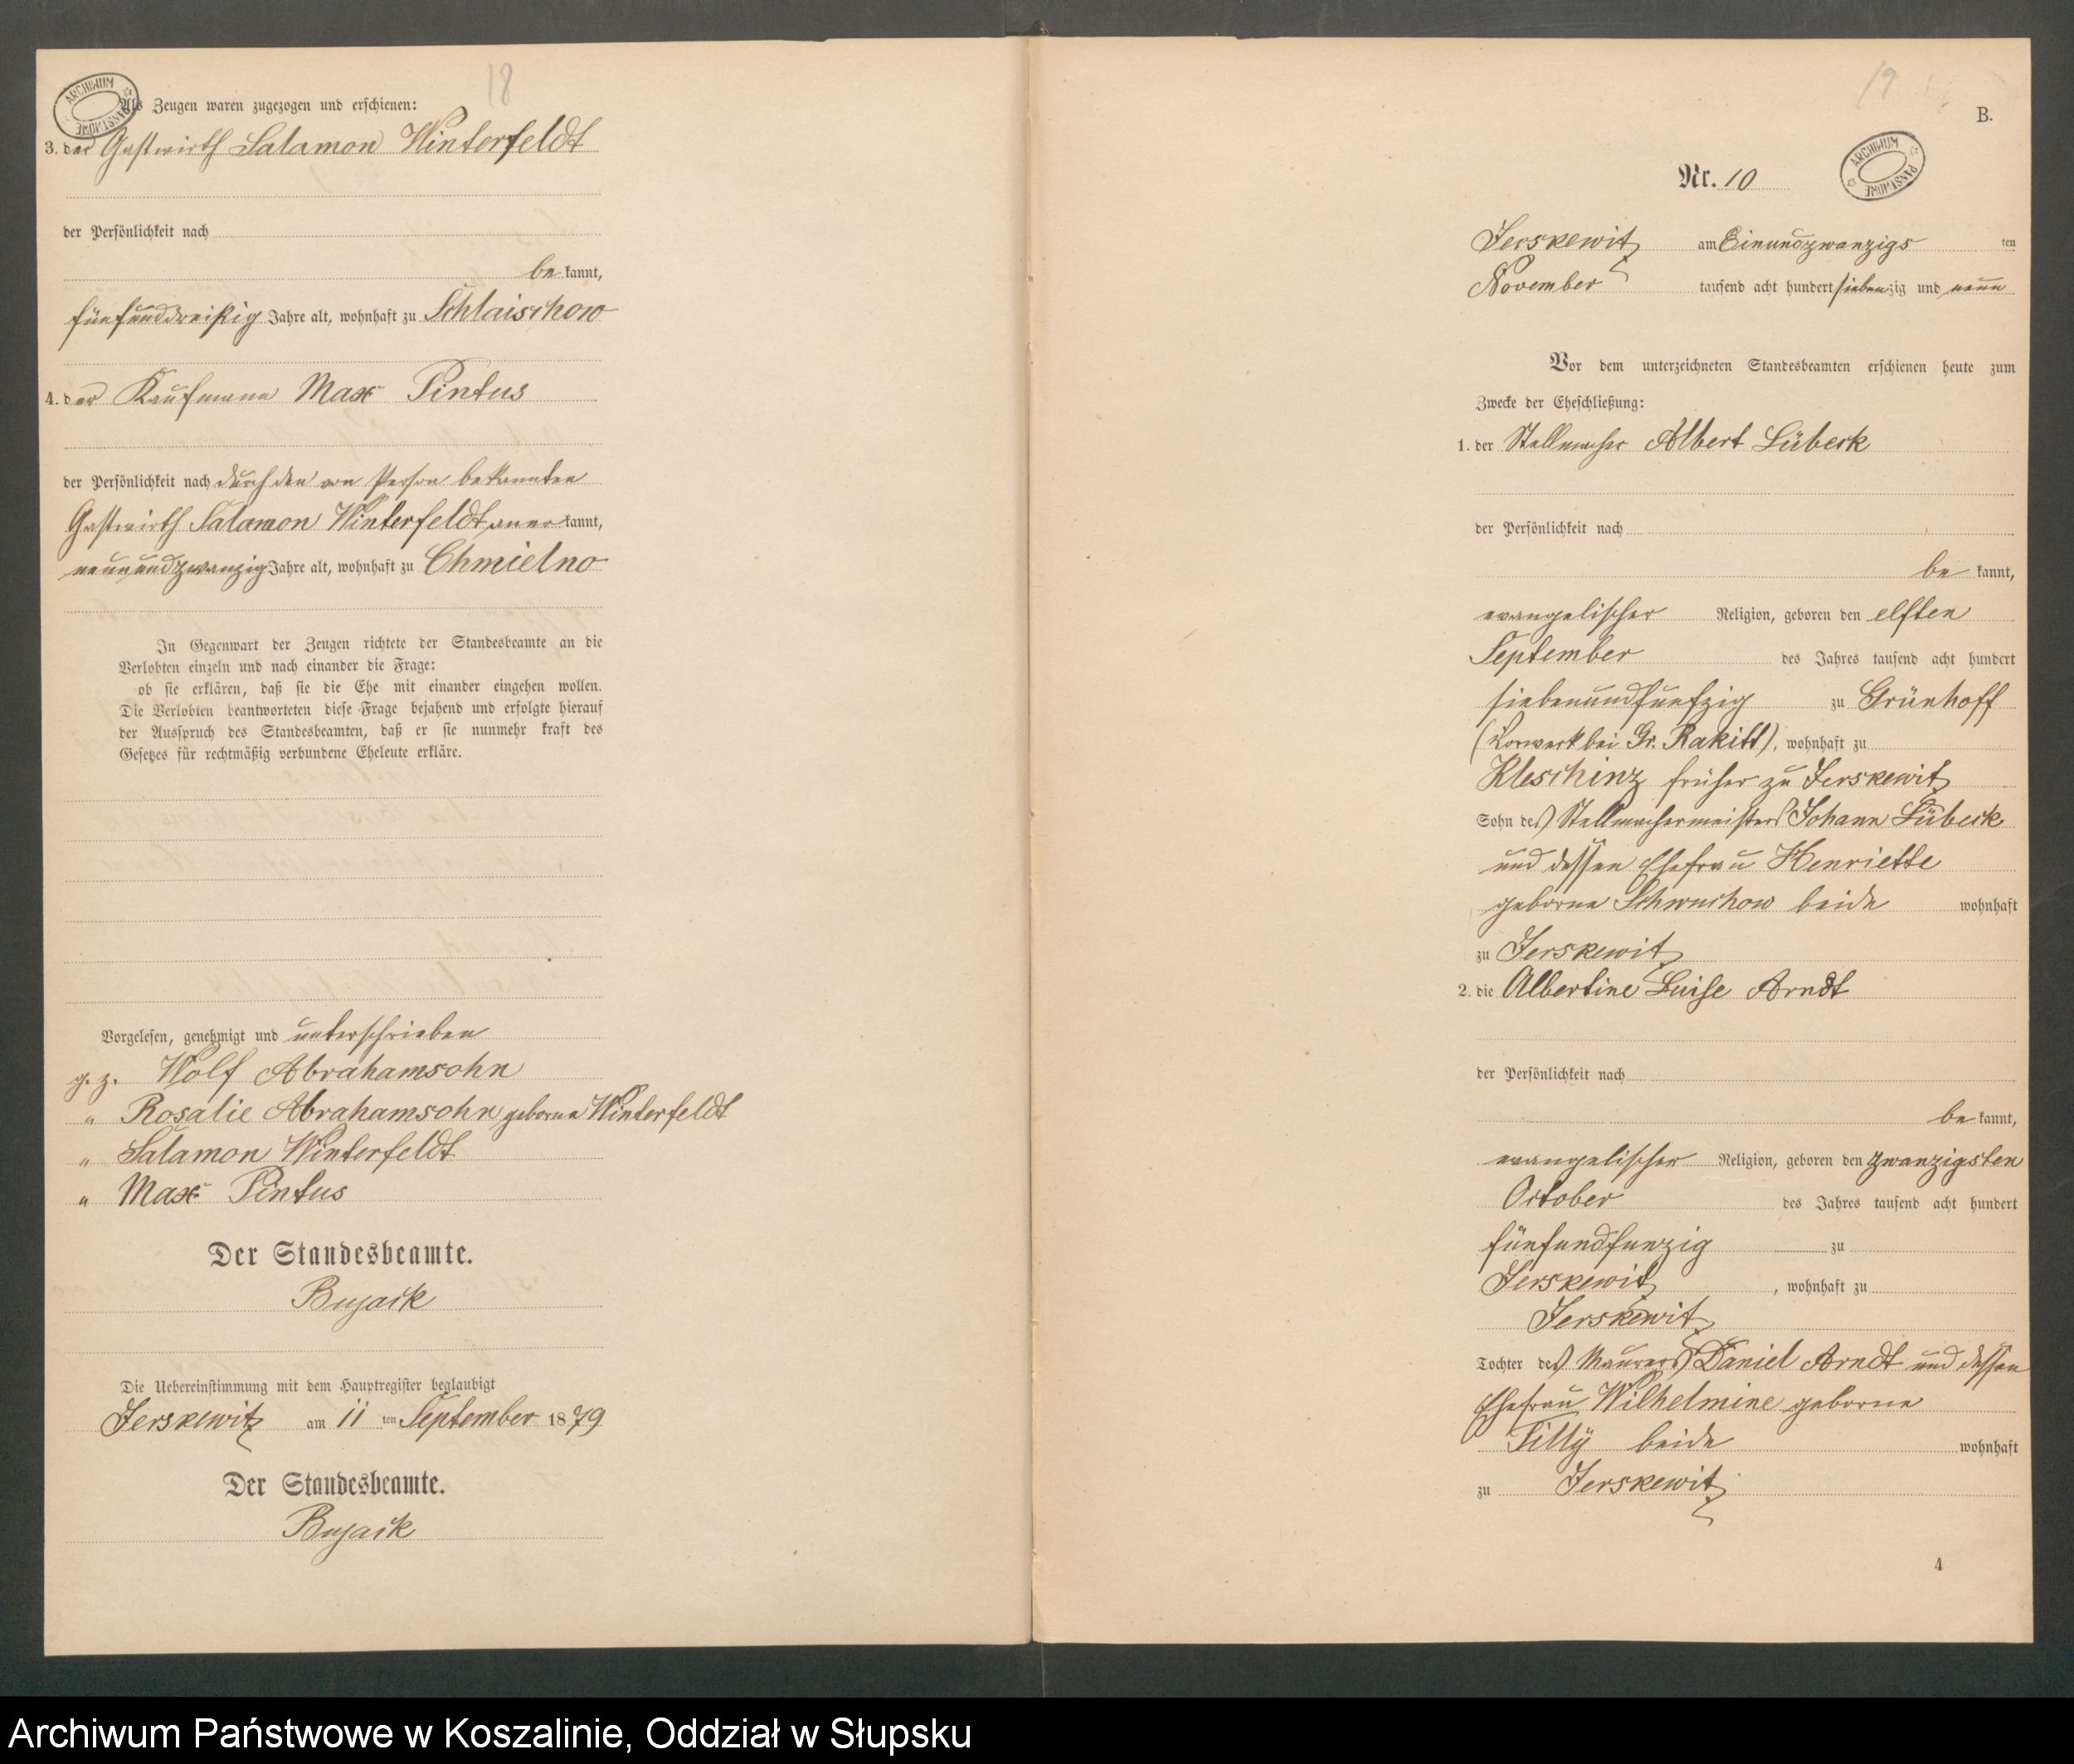 18
ARCHIWUM PAŃSTWOWE
Als Zeugen waren zugezogen und erschienen:
3. der Gastwirth Salamon Winterfeldt
der Persönlichkeit nach
be kannt,
fünfunddreißig Jahre alt, wohnhaft zu Schlaischow
4. der Kaufmann Max Pintus
der Persönlichkeit nach durch den von Person bekannten
Gastwirth Salamon Winterfeldt aner kannt,
neunundzwanzig Jahre alt, wohnhaft zu Chmielno
In Gegenwart der Zeugen richtete der Standesbeamte an die
Verlobten einzeln und nach einander die Frage:
ob sie erklären, daß sie die Ehe mit einander eingehen wollen.
Die Verlobten beantworteten diese Frage bejahend und erfolgte hierauf
der Ausspruch des Standesbeamten, daß er sie nunmehr kraft des
Gesetzes für rechtmäßig verbundene Eheleute erkläre.
Vorgelesen, genehmigt und unterschrieben
g. z. Wolf Abrahamsohn
" Rosalie Abrahamsohn geborne Winterfeldt
" Salamon Winterfeldt
" Max Pintus
Der Standesbeamte.
Bujack
Die Uebereinstimmung mit dem Hauptregister beglaubigt
Jerskewitz am 11 ten September 1879
Der Standesbeamte.
Bujack
19
B.
ARCHIWUM PAŃSTWOWE
Nr. 10
Jerskewitz am Einundzwanzigs ten
November tausend acht hundert siebenzig und neun
Vor dem unterzeichneten Standesbeamten erschienen heute zum
Zwecke der Eheschließung:
1. der Stellmacher Albert Lübeck
der Persönlichkeit nach
be kannt,
evangelischer Religion, geboren den elften
September des Jahres tausend acht hundert
siebenundfunfzig zu Grünhoff
(Vorwerk bei Gr. Rakitt), wohnhaft zu
Kleschinz früher zu Jerskewitz
Sohn des Stellmachermeisters Johann Lübeck
und dessen Ehefrau Henriette
geborne Schwuchow beide wohnhaft
zu Jerskewitz
2. die Albertine Luise Arndt
der Persönlichkeit nach
be kannt,
evangelischer Religion, geboren den zwanzigsten
October des Jahres tausend acht hundert
fünfundfunzig zu
Jerskewitz, wohnhaft zu
Jerskewitz
Tochter des Maurers Daniel Arndt und dessen
Ehefrau Wilhelmine geborne
Tilly beide wohnhaft
zu Jerskewitz
4
Archiwum Państwowe w Koszalinie, Oddział w Słupsku